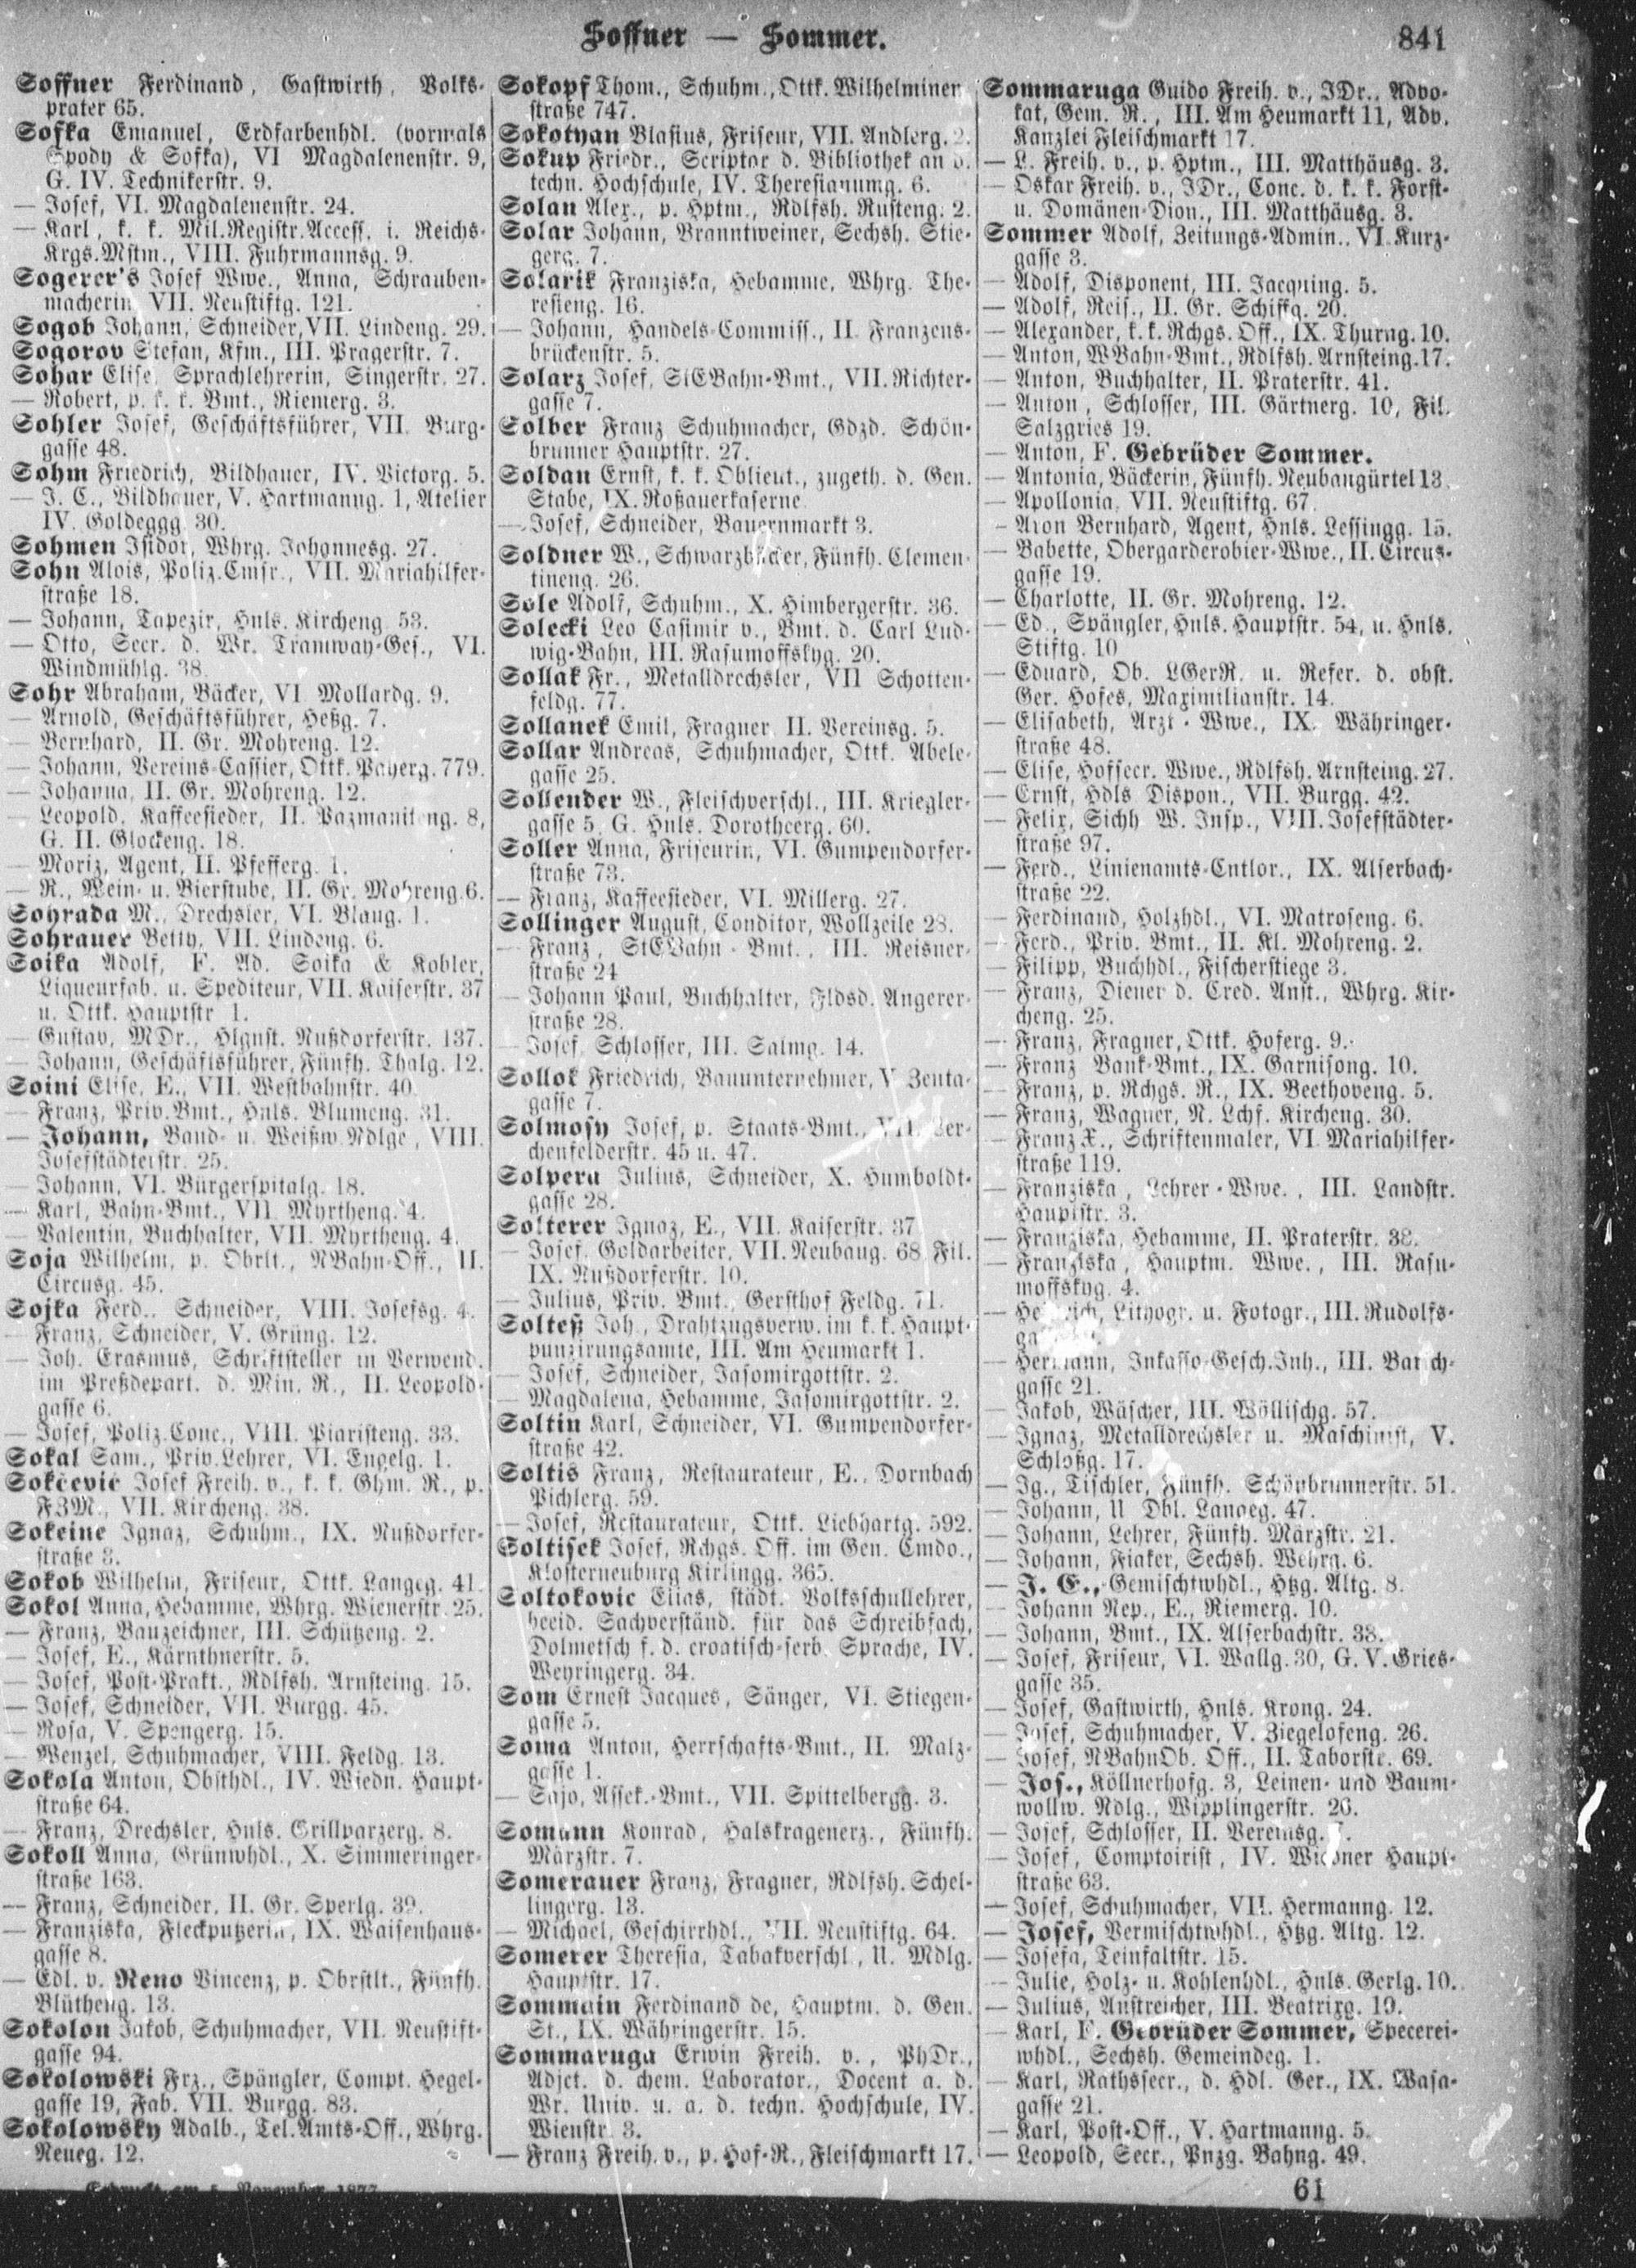 Soffner — Sommer.
841
Soffner Ferdinand, Gastwirth, Volks-
prater 65.
Sofka Emanuel, Erdfarbenhdl. (vormals
Spody & Sofka), VI Magdalenenstr. 9,
G. IV. Technikerstr. 9.
— Josef, VI. Magdalenenstr. 24.
— Karl, k. k. Mil.Registr.Access. i. Reichs-
Krgs.Mstm., VIII. Fuhrmannsg. 9.
Sogerer's Josef Wwe., Anna, Schrauben-
macherin VII. Neustiftg. 121.
Sogob Johann, Schneider, VII. Lindeng. 29.
Sogorov Stefan, Kfm., III. Pragerstr. 7.
Sohar Elise, Sprachlehrerin, Singerstr. 27.
— Robert, p. k. k. Bmt., Riemerg. 3.
Sohler Josef, Geschäftsführer, VII. Burg-
gasse 48.
Sohm Friedrich, Bildhauer, IV. Victorg. 5.
— J. C., Bildhauer, V. Hartmanng. 1, Atelier
IV. Goldeggg. 30.
Sohmen Isidor, Whrg. Johannesg. 27.
Sohn Alois, Poliz.Cmsr., VII. Mariahilfer-
straße 18.
— Johann, Tapezir, Hnls. Kircheng. 53.
— Otto, Secr. d. Wr. Tramway-Ges., VI.
Windmühlg. 38.
Sohr Abraham, Bäcker, VI Mollardg. 9.
— Arnold, Geschäftsführer, Heßg. 7.
— Bernhard, II. Gr. Mohreng. 12.
— Johann, Vereins-Cassier, Ottk. Payerg. 779.
— Johanna, II. Gr. Mohreng. 12.
— Leopold, Kaffeesieder, II. Pazmaniteng. 8,
G. II. Glockeng. 18.
— Moriz, Agent, II. Pfefferg. 1.
— R., Wein- u. Bierstube, II. Gr. Mohreng. 6.
Sohrada M., Drechsler, VI. Blaug. 1.
Sohrauer Betty, VII. Lindeng. 6.
Soika Adolf, F. Ad. Soika & Kobler,
Liqueurfab. u. Spediteur, VII. Kaiserstr. 37
u. Ottk. Hauptstr 1.
— Gustav, MDr., Hlgnst. Nußdorferstr. 137.
— Johann, Geschäftsführer, Fünfh. Thalg. 12.
Soini Elise, E., VII. Westbahnstr. 40.
— Franz, Priv.Bmt., Hnls. Blumeng. 31.
— Johann, Band- u. Weißw.Ndlge, VIII.
Josefstädterstr. 25.
— Johann, VI. Bürgerspitalg. 18.
— Karl, Bahn-Bmt., VII. Myrtheng. 4.
— Valentin, Buchhalter, VII. Myrtheng. 4.
Soja Wilhelm, p. Obrlt., NBahn-Off., II.
Circusg. 45.
Sojka Ferd., Schneider, VIII. Josefsg. 4.
— Franz, Schneider, V. Grüng. 12.
— Joh. Erasmus, Schriftsteller in Verwend.
im Preßdepart. d. Min. R., II. Leopold-
gasse 6.
— Josef, Poliz.Conc., VIII. Piaristeng. 33.
Sokal Sam., Priv.Lehrer, VI. Engelg. 1.
Sokčević Josef Freih. v., k. k. Ghm. R., p.
FZM., VII. Kircheng. 38.
Sokeine Ignaz, Schuhm., IX. Nußdorfer-
straße 3.
Sokob Wilhelm, Friseur, Ottk. Langeg. 41.
Sokol Anna, Hebamme, Whrg. Wienerstr. 25.
— Franz, Bauzeichner, III. Schützeng. 2.
— Josef, E., Kärnthnerstr. 5.
— Josef, Post-Prakt., Rdlfsh. Arnsteing. 15.
— Josef, Schneider, VII. Burgg. 45.
— Rosa, V. Spengerg. 15.
— Wenzel, Schuhmacher, VIII. Feldg. 13.
Sokola Anton, Obsthdl., IV. Wiedn. Haupt-
straße 64.
— Franz, Drechsler, Hnls. Grillparzerg. 8.
Sokoll Anna, Grünwhdl., X. Simmeringer-
straße 163.
— Franz, Schneider, II. Gr. Sperlg. 39.
— Franziska, Fleckputzerin, IX. Waisenhaus-
gasse 8.
— Edl. v. Reno Vincenz, p. Obrstlt., Fünfh.
Blütheng. 13.
Sokolon Jakob, Schuhmacher, VII. Neustift-
gasse 94.
Sokolowski Frz., Spängler, Compt. Hegel-
gasse 19, Fab. VII. Burgg. 83.
Sokolowsky Adalb., Tel.Amts-Off., Whrg.
Neueg. 12.
Sokopf Thom., Schuhm., Ottk. Wilhelminen
straße 747.
Sokotyan Blasius, Friseur, VII. Andlerg. 2.
Sokup Friedr., Scriptor d. Bibliothek an d.
techn. Hochschule, IV. Theresianumg. 6.
Solan Alex., p. Hptm., Rdlfsh. Rusteng. 2.
Solar Johann, Branntweiner, Sechsh. Stie-
gerg. 7.
Solarik Franziska, Hebamme, Whrg. The-
resieng. 16.
— Johann, Handels-Commiss., II. Franzens-
brückenstr. 5.
Solarz Josef, StEBahn-Bmt., VII. Richter-
gasse 7.
Solber Franz Schuhmacher, Gdzd. Schön-
brunner Hauptstr. 27.
Soldan Ernst, k. k. Oblieut., zugeth. d. Gen.
Stabe, IX. Roßauerkaserne
— Josef, Schneider, Bauernmarkt 3.
Soldner W., Schwarzbäcker, Fünfh. Clemen-
tineng. 26.
Sole Adolf, Schuhm., X. Himbergerstr. 36.
Solecki Leo Casimir v., Bmt. d. Carl Lud-
wig-Bahn, III. Rasumoffskyg. 20.
Sollak Fr., Metalldrechsler, VII Schotten-
feldg. 77.
Sollanek Emil, Fragner II. Vereinsg. 5.
Sollar Andreas, Schuhmacher, Ottk. Abele-
gasse 25.
Sollender W., Fleischverschl., III. Kriegler-
gasse 5, G. Hnls. Dorotheerg. 60.
Soller Anna, Friseurin, VI. Gumpendorfer-
straße 73.
— Franz, Kaffeesieder, VI. Millerg. 27.
Sollinger August, Conditor, Wollzeile 28.
— Franz, StEBahn-Bmt., III. Reisner-
straße 24
— Johann Paul, Buchhalter, Fldsd. Angerer-
straße 28.
— Josef, Schlosser, III. Salmg. 14.
Sollok Friedrich, Bauunternehmer, V. Zenta-
gasse 7.
Solmosy Josef, p. Staats-Bmt., VII. Ler-
chenfelderstr. 45 u. 47.
Solpera Julius, Schneider, X. Humboldt-
gasse 28.
Solterer Ignaz, E., VII. Kaiserstr. 37
— Josef, Goldarbeiter, VII. Neubaug. 68, Fil.
IX. Nußdorferstr. 10.
— Julius, Priv. Bmt., Gersthof Feldg. 71.
Solteß Joh., Drahtzugsverw. im k. k. Haupt-
punzirungsamte, III. Am Heumarkt 1.
— Josef, Schneider, Jasomirgottstr. 2.
— Magdalena, Hebamme, Jasomirgottstr. 2.
Soltin Karl, Schneider, VI. Gumpendorfer-
straße 42.
Soltis Franz, Restaurateur, E., Dornbach
Pichlerg. 59.
— Josef, Restaurateur, Ottk. Liebhartg. 592.
Soltisek Josef, Rchgs. Off. im Gen. Cmdo.,
Klosterneuburg Kirlingg. 365.
Soltokovic Elias, städt. Volksschullehrer,
beeid. Sachverständ. für das Schreibfach,
Dolmetsch f. d. croatisch-serb. Sprache, IV.
Weyringerg. 34.
Som Ernest Jacques, Sänger, VI. Stiegen-
gasse 5.
Soma Anton, Herrschafts-Bmt., II. Malz-
gasse 1.
— Sajo, Assek.-Bmt., VII. Spittelbergg. 3.
Somann Konrad, Halskragenerz., Fünfh.
Märzstr. 7.
Somerauer Franz, Fragner, Rdlfsh. Schel-
lingerg. 13.
— Michael, Geschirrhdl., VII. Neustiftg. 64.
Somerer Theresia, Tabakverschl., U. Mdlg.
Hauptstr. 17.
Sommain Ferdinand de, Hauptm. d. Gen.
St., IX. Währingerstr. 15.
Sommaruga Erwin Freih. v., PhDr.,
Adjct. d. chem. Laborator., Docent a. d.
Wr. Univ. u. a. d. techn. Hochschule, IV.
Wienstr. 3.
— Franz Freih. v., p. Hof-R., Fleischmarkt 17.
Sommaruga Guido Freih. v., JDr., Advo-
kat, Gem. R., III. Am Heumarkt 11, Adv.
Kanzlei Fleischmarkt 17.
— L. Freih. v., p. Hptm., III. Matthäusg. 3.
— Oskar Freih. v., JDr., Conc. d. k. k. Forst-
u. Domänen-Dion., III. Matthäusg. 3.
Sommer Adolf, Zeitungs-Admin., VI. Kurz-
gasse 3.
— Adolf, Disponent, III. Jacquing. 5.
— Adolf, Reis., II. Gr. Schiffg. 20.
— Alexander, k. k. Rchgs. Off., IX. Thurng. 10.
— Anton, WBahn-Bmt., Rdlfsh. Arnsteing. 17.
— Anton, Buchhalter, II. Praterstr. 41.
— Anton, Schlosser, III. Gärtnerg. 10, Fil.
Salzgries 19.
— Anton, F. Gebrüder Sommer.
— Antonia, Bäckerin, Fünfh. Neubaugürtel 13.
— Apollonia, VII. Neustiftg. 67.
— Aron Bernhard, Agent, Hnls. Lessingg. 15.
— Babette, Obergarderobier-Wwe., II. Circus-
gasse 19.
— Charlotte, II. Gr. Mohreng. 12.
— Ed., Spängler, Hnls. Hauptstr. 54, u. Hnls.
Stiftg. 10
— Eduard, Ob. LGerR. u. Refer. d. obst.
Ger. Hofes, Maximilianstr. 14.
— Elisabeth, Arzt-Wwe., IX. Währinger-
straße 48.
— Elise, Hofsecr. Wwe., Rdlfsh. Arnsteing. 27.
— Ernst, Hdls Dispon., VII. Burgg. 42.
— Felix, Sichh W. Insp., VIII. Josefstädter-
straße 97.
— Ferd., Linienamts-Cntlor., IX. Alserbach-
straße 22.
— Ferdinand, Holzhdl., VI. Matroseng. 6.
— Ferd., Priv. Bmt., II. Kl. Mohreng. 2.
— Filipp, Buchhdl., Fischerstiege 3.
— Franz, Diener d. Cred. Anst., Whrg. Kir-
cheng. 25.
— Franz, Fragner, Ottk. Hoferg. 9.
— Franz Bank-Bmt., IX. Garnisong. 10.
— Franz, p. Rchgs. R., IX. Beethoveng. 5.
— Franz, Wagner, N. Lchf. Kircheng. 30.
— Franz X., Schriftenmaler, VI. Mariahilfer-
straße 119.
— Franziska, Lehrer-Wwe., III. Landstr.
Hauptstr. 3.
— Franziska, Hebamme, II. Praterstr. 38.
— Franziska, Hauptm. Wwe., III. Rasu-
moffskyg. 4.
— Heinrich, Lithogr. u. Fotogr., III. Rudolfs-
— Hermann, Inkasso-Gesch.Inh., III. Barich-
gasse 21.
— Jakob, Wäscher, III. Wöllischg. 57.
— Ignaz, Metalldrechsler u. Maschinist, V.
Schloßg. 17.
— Ig., Tischler, Fünfh. Schönbrunnerstr. 51.
— Johann, U Dbl. Langeg. 47.
— Johann, Lehrer, Fünfh. Märzstr. 21.
— Johann, Fiaker, Sechsh. Wehrg. 6.
— J. E., Gemischtwhdl., Htzg. Altg. 8.
— Johann Nep., E., Riemerg. 10.
— Johann, Bmt., IX. Alserbachstr. 33.
— Josef, Friseur, VI. Wallg. 30, G. V. Gries-
gasse 35.
— Josef, Gastwirth, Hnls. Krong. 24.
— Josef, Schuhmacher, V. Ziegelofeng. 26.
— Josef, NBahnOb. Off., II. Taborstr. 69.
— Jos., Köllnerhofg. 3, Leinen- und Baum-
wollw. Ndlg., Wipplingerstr. 26.
— Josef, Schlosser, II. Vereinsg.
— Josef, Comptoirist, IV. Wiedner Haupt-
straße 63.
— Josef, Schuhmacher, VII. Hermanng. 12.
— Josef, Vermischtwhdl., Htzg. Altg. 12.
— Josefa, Teinfaltstr. 15.
— Julie, Holz- u. Kohlenhdl., Hnls. Gerlg. 10.
— Julius, Anstreicher, III. Beatrixg. 19.
— Karl, F. Gebrüder Sommer, Specerei-
whdl., Sechsh. Gemeindeg. 1.
— Karl, Rathssecr., d. Hdl. Ger., IX. Wasa-
gasse 21.
— Karl, Post-Off., V. Hartmanng. 5.
— Leopold, Secr., Pnzg. Bahng. 49.
Gedruckt am 5. November 1877
61